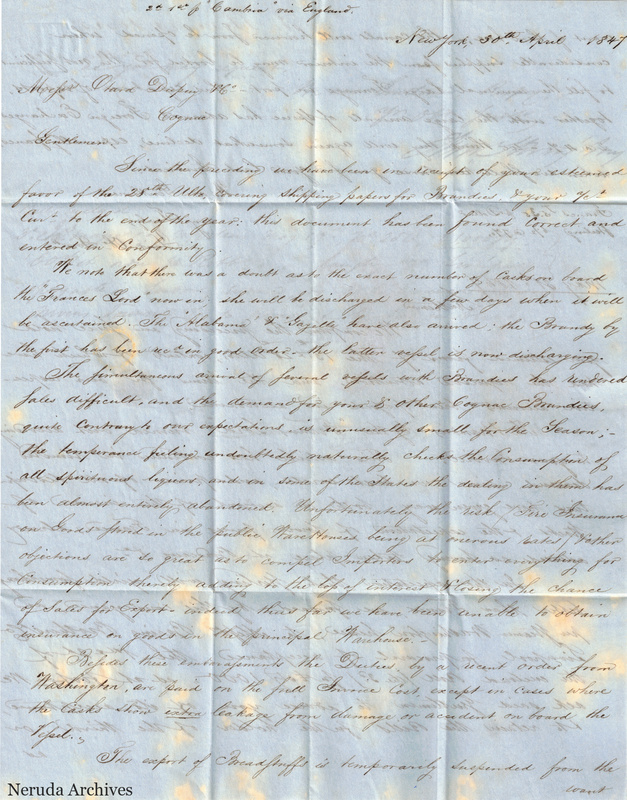 2d pr p "Cambria" via England
New York, 30th April 1847
Messrs Otard Dupuy & Co -
Cognac
Gentlemen,
Since the preceding we have been in receipt of your esteemed
favor of the 28th Ulto. covering shipping papers for Brandies, & your % 
Curt. to the end of the year: this document has been found correct and
entered in Conformity.
We note that there was a doubt as to the exact number of Casks on board
the "Frances Lord" now in; she will be discharged in a few days when it will
be ascertained. The "Alabama" & "Gazelle" have also arrived: the Brandy by
the first has been recd in good order - the latter vessel is now discharging.
The simultaneous arrival of several vessels with Brandies has rendered
sales difficult, and the demand for your & other Cognac Brandies,
quite contrary to our expectations, is unusually small for the Season; -
the temperance feeling undoubtedly naturally checks the Consumption of
all spirituous liquors, and in some of the States the dealing in them has
been almost entirely abandoned. Unfortunately the risk / Fire Insurance
on Goods stored in the public Warehouses being at onerous rates / & other
objections are so great as to compel Importers to enter everything for
Consumption thereby adding to the loss of interest & losing the chance
of Sales for Export - indeed thus far we have been unable to obtain
insurance on goods in the principal Warehouse.
Besides these embarrassments the Duties, by a recent order from
Washington, are paid on the full Invoice Cost except in cases where
the Casks show extra leakage from damage or accident on board the
Vessel.,
The export of Breadstuffs is temporarily suspended from the
want
Neruda Archives